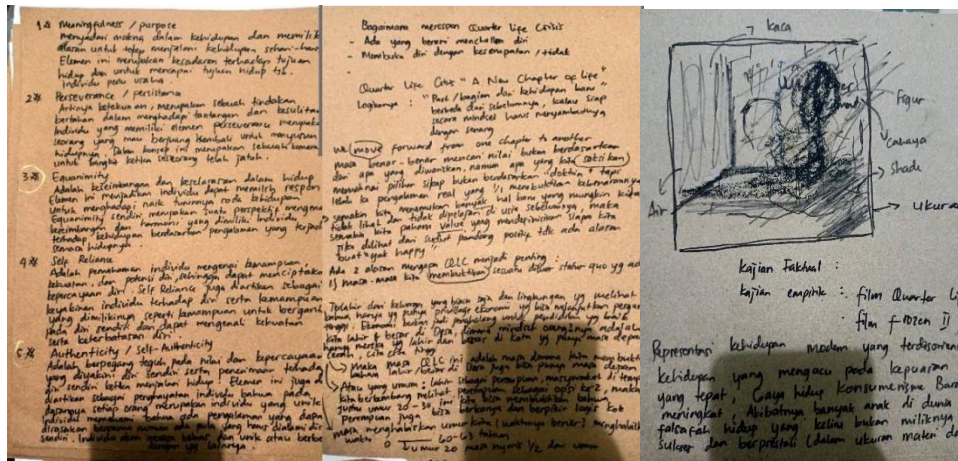 1 Meaningfulness / purpose
menyadari makna dalam kehidupan dan memiliki
alasan untuk tetap menjalani kehidupan sehari-hari
Elemen ini merupakan kesadaran terhadap tujuan
hidup dan untuk mencapai tujuan hidup tsb.
Individu perlu usaha
2 Perseverance / persistance
Artinya ketekunan, merupakan sebuah tindakan
bertahan dalam menghadapi tantangan dan kesulitan
Individu yang memiliki elemen perseverance merupakan
seorang yang mau berjuang kembali untuk menyusun
hidupnya. Dalam konsep ini merupakan sebuah
untuk bangkit ketika seseorang telah jatuh.
3 Equanimity
Adalah keseimbangan dan keselarasan dalam hidup
Elemen ini menjadikan individu dapat memilih respon
untuk menghadapi naik turunnya roda kehidupan
Equanimity sendiri merupakan suatu perspektif mengenai
keseimbangan dan harmoni yang dimiliki individu
terhadap kehidupan berdasarkan pengalaman yang terjadi
semasa hidupnya.
4 Self Reliance
Adalah pemahaman individu mengenai kemampuan,
kekuatan, dan potensi diri, sehingga dapat menciptakan
kepercayaan diri. Self Reliance juga diartikan sebagai
keyakinan individu terhadap diri serta kemampuan
yang dimilikinya seperti kemampuan untuk bergantung
pada diri sendiri dan dapat mengenali kekuatan
serta keterbatasan diri
5 Authenticity / Self-Authenticity
Adalah berpegang teguh pada nilai dan kepercayaan
yang diyakini diri sendiri serta penerimaan terhadap
diri sendiri ketika menjalani hidup. Elemen ini juga
diartikan sebagai penghayatan individu bahwa pada
dasarnya setiap orang merupakan individu yang unik
individu memahami bahwa ada pengalaman yang dapa
dirasakan bersama namun ada pula yang harus dialami diri
sendiri. Individu akan merasa bebas dan unik atau berbe
dengan yg lainnya.
Bagaimana merespon Quarter Life Crisis
- Ada yang berani menchallen diri
- Membuka diri dengan kesempatan / tidak
Quarter Life Crisis "A New Chapter of Life"
Logikanya : "Part / bagian dari kehidupan baru"
berbeda dari sebelumnya, kalau siap
secara mindset harus menyambutnya
dengan senang
We move forward from one chapter to another
masa benar-benar mencari nilai bukan berdasarkan
dari apa yang diwariskan, namun apa yang kita saksikan
memaknai pilihan sikap bukan berdasarkan doktrin + tapi
lebih ke pengalaman real yang membuktikan kebenarannya
semakin kita menemukan banyak hal baru yang mungkin kita
tidak lihat dan tidak dipelajari di usia sebelumnya, maka
semakin kita pahami value yang mendefinisikan siapa kita
jika dilihat dari sudut pandang positif tdk ada alasan
buat nggak happy
Ada 2 alasan mengapa QLC menjadi penting :
1) masa-masa kita membuktikan sesuatu diluar status quo yg ad
Terlahir dari keluarga yang biasa saja dan lingkungan yg melihat
bahwa hanya yg punya privilege ekonomi yg bisa
Ekonomi bukan jadi penghalang untuk pendidikan yg baik
kita lahir & besar di Desa, dimana mindset orangnya adalah
hanya mereka yg lahir dan besar di kota yg punya masa depan
cerah, cita cita tinggi
Maka masa QLC ini adalah masa dimana kita membukti
bahwa lahir/besar di Desa juga bisa punya masa depan
Atau yang umum : lahir sebagai perempuan, masyarakat di temp
kita berkembang melihat perempuan sebagai opsi ke-2, maka
justru umur 20-30 kita bisa membuktikan bahwa
perempuan juga bisa berkarya dan berpikir logis kok
masa menghabiskan umur kita (waktunya bener)
waktu 0 60-63 tahun
umur 20 masa nyaris 1/2 dari umur
Kaca
Figur
Cahaya
Shade
Air
ukura
Kajian Faktual :
kajian empirik : film Quarter Li
: film frozen II
Representasi kehidupan modern yang terdisorien
kehidupan yang mengacu pada kepuasan
yang tepat, Gaya hidup konsumerisme Bara
meningkat, Akibatnya banyak anak di dunia
falsafah hidup yang keliru bukan miliknya
sukses dan berprestasi (dalam ukuran materi da